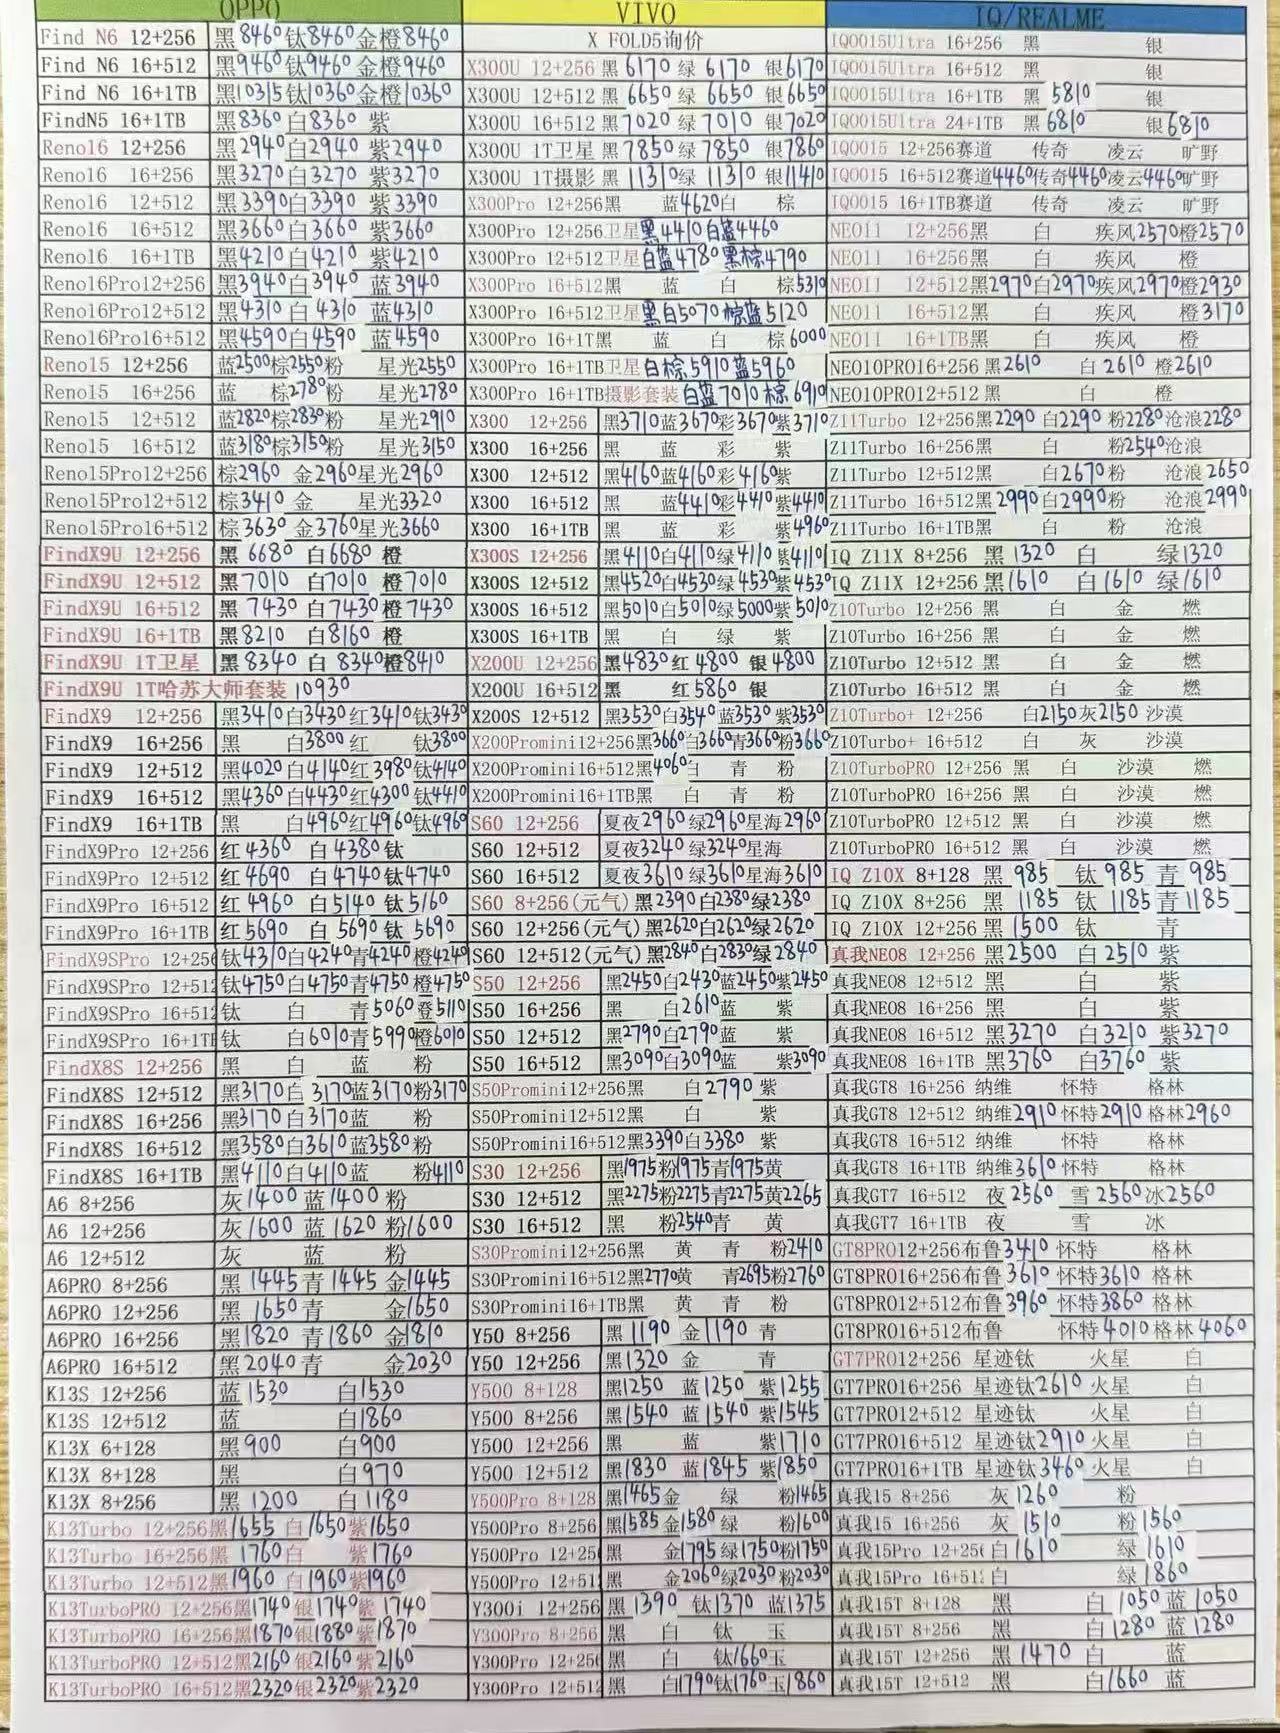 OPPO
Find N6 12+256 黑8460钛8460金橙8460
Find N6 16+512 黑9460钛9460金橙9460
Find N6 16+1TB 黑10315钛10360金橙10360
FindN5 16+1TB 黑8360白8360紫
Reno16 12+256 黑2940白2940紫2940
Reno16 16+256 黑3270白3270紫3270
Reno16 12+512 黑3390白3390紫3390
Reno16 16+512 黑3660白3660紫3660
Reno16 16+1TB 黑4210白4210紫4210
Reno16Pro12+256 黑3940白3940蓝3940
Reno16Pro12+512 黑4310白4310蓝4310
Reno16Pro16+512 黑4590白4590蓝4590
Reno15 12+256 蓝2500棕2550粉 星光2550
Reno15 16+256 蓝 棕2780粉 星光2780
Reno15 12+512 蓝2820棕2830粉 星光2910
Reno15 16+512 蓝3180棕3150粉 星光3150
Reno15Pro12+256 棕2960 金2960星光2960
Reno15Pro12+512 棕3410 金 星光3320
Reno15Pro16+512 棕3630 金3760星光3660
FindX9U 12+256 黑6680 白6680橙
FindX9U 12+512 黑7010 白7010 橙7010
FindX9U 16+512 黑7430 白7430橙7430
FindX9U 16+1TB 黑8210 白8160橙
FindX9U 1T卫星 黑8340 白8340橙8410
FindX9U 1T哈苏大师套装10930
FindX9 12+256 黑3410白3430红3410钛3430
FindX9 16+256 黑 白3800红 钛3800
FindX9 12+512 黑4020白4140红3980钛4140
FindX9 16+512 黑4360白4430红4300钛4410
FindX9 16+1TB 黑 白4960红4960钛4960
FindX9Pro 12+256 红4360 白4380钛
FindX9Pro 12+512 红4690 白4740钛4740
FindX9Pro 16+512 红4960 白5140钛5160
FindX9Pro 16+1TB 红5690 白5690钛5690
FindX9SPro 12+256 钛4310白4240青4240橙4240
FindX9SPro 12+512 钛4750白4750青4750橙4750
FindX9SPro 16+512 钛 白 青5060橙5110
FindX9SPro 16+1TB 钛 白6010青5990橙6010
FindX8S 12+256 黑 白 蓝 粉
FindX8S 12+512 黑3170白3170蓝3170粉3170
FindX8S 16+256 黑3170白3170蓝 粉
FindX8S 16+512 黑3580白3610蓝3580粉
FindX8S 16+1TB 黑4110白4110蓝 粉4110
A6 8+256 灰1400蓝1400粉
A6 12+256 灰1600蓝1620粉1600
A6 12+512 灰 蓝 粉
A6PRO 8+256 黑1445青1445金1445
A6PRO 12+256 黑1650青 金1650
A6PRO 16+256 黑1820青1860金1810
A6PRO 16+512 黑2040青 金2030
K13S 12+256 蓝1530 白1530
K13S 12+512 蓝 白1860
K13X 6+128 黑900 白900
K13X 8+128 黑 白970
K13X 8+256 黑1200 白1180
K13Turbo 12+256黑1655白1650紫1650
K13Turbo 16+256黑1760白 紫1760
K13Turbo 12+512黑1960白1960紫1960
K13TurboPRO 12+256黑1740银1740紫1740
K13TurboPRO 16+256黑1870银1880紫1870
K13TurboPRO 12+512黑2160银2160紫2160
K13TurboPRO 16+512黑2320银2320紫2320
VIVO
X FOLD5询价
X300U 12+256 黑6170绿6170银6170
X300U 12+512 黑6650绿6650银6650
X300U 16+512 黑7020绿7010银7020
X300U 1T卫星 黑7850绿7850银7860
X300U 1T摄影 黑11310绿11310银11410
X300Pro 12+256黑 蓝4620白 棕
X300Pro 12+256卫星黑4410白蓝4460
X300Pro 12+512卫星白蓝4780黑棕4790
X300Pro 16+512黑 蓝 白 棕5310
X300Pro 16+512卫星黑白5070棕蓝5120
X300Pro 16+1T黑 蓝 白 棕6000
X300Pro 16+1TB卫星白棕5910蓝5960
X300Pro 16+1TB摄影套装白蓝7010棕6910
X300 12+256 黑3710蓝3670彩3670紫3710
X300 16+256 黑 蓝 彩 紫
X300 12+512 黑4160蓝4160彩4160紫
X300 16+512 黑 蓝4410彩4410紫4410
X300 16+1TB 黑 蓝 彩 紫4960
X300S 12+256 黑4110白4110绿4110紫4110
X300S 12+512 黑4520白4530绿4530紫4530
X300S 16+512 黑5010白5010绿5000紫5010
X300S 16+1TB 黑 白 绿 紫
X200U 12+256 黑4830红4800银4800
X200U 16+512 黑 红5860银
X200S 12+512 黑3530白3540蓝3530紫3530
X200Promini12+256黑3660白3660青3660粉3660
X200Promini16+512黑4060白 青 粉
X200Promini16+1TB黑 白 青 粉
S60 12+256 夏夜2960绿2960星海2960
S60 12+512 夏夜3240绿3240星海
S60 16+512 夏夜3610绿3610星海3610
S60 8+256(元气)黑2390白2380绿2380
S60 12+256(元气)黑2620白2620绿2620
S60 12+512(元气)黑2840白2830绿2840
S50 12+256 黑2450白2430蓝2450紫2450
S50 16+256 黑 白2610蓝 紫
S50 12+512 黑2790白2790蓝 紫
S50 16+512 黑3090白3090蓝 紫3090
S50Promini12+256黑 白2790紫
S50Promini12+512黑 白 紫
S50Promini16+512黑3390白3380紫
S30 12+256 黑1975粉1975青1975黄
S30 12+512 黑2275粉2275青2275黄2265
S30 16+512 黑 粉2540青 黄
S30Promini12+256黑 黄 青 粉2410
S30Promini16+512黑2770黄 青2695粉2760
S30Promini16+1TB黑 黄 青 粉
Y50 8+256 黑1190金1190青
Y50 12+256 黑1320金 青
Y500 8+128 黑1250蓝1250紫1255
Y500 8+256 黑1540蓝1540紫1545
Y500 12+256 黑 蓝 紫1710
Y500 12+512 黑1830蓝1845紫1850
Y500Pro 8+128 黑1465金 绿 粉1465
Y500Pro 8+256 黑1585金1580绿 粉1600
Y500Pro 12+256 黑 金1795绿1750粉1750
Y500Pro 12+512 黑 金2060绿2030粉2030
Y300i 12+256 黑1390钛1370蓝1375
Y300Pro 8+256 黑 白 钛 玉
Y300Pro 12+256 黑 白 钛1660玉
Y300Pro 12+512 黑 白1790钛1760玉1860
IQ/REALME
IQOO15Ultra 16+256 黑 银
IQOO15Ultra 16+512 黑 银
IQOO15Ultra 16+1TB 黑5810 银
IQOO15Ultra 24+1TB 黑6810 银6810
IQOO15 12+256赛道 传奇 凌云 旷野
IQOO15 16+512赛道4460传奇4460凌云4460旷野
IQOO15 16+1TB赛道 传奇 凌云 旷野
NEO11 12+256黑 白 疾风2570橙2570
NEO11 16+256黑 白 疾风 橙
NEO11 12+512黑2970白2970疾风2970橙2930
NEO11 16+512黑 白 疾风 橙3170
NEO11 16+1TB黑 白 疾风 橙
NEO10PRO16+256黑2610 白2610橙2610
NEO10PRO12+512黑 白 橙
Z11Turbo 12+256黑2290白2290粉2280沧浪2280
Z11Turbo 16+256黑 白 粉2540沧浪
Z11Turbo 12+512黑 白2670粉 沧浪2650
Z11Turbo 16+512黑2990白2990粉 沧浪2990
Z11Turbo 16+1TB黑 白 粉 沧浪
IQ Z11X 8+256 黑1320白 绿1320
IQ Z11X 12+256黑1610白1610绿1610
Z10Turbo 12+256 黑 白 金 燃
Z10Turbo 16+256 黑 白 金 燃
Z10Turbo 12+512 黑 白 金 燃
Z10Turbo 16+512 黑 白 金 燃
Z10Turbo+ 12+256 白2150灰2150沙漠
Z10Turbo+ 16+512 白 灰 沙漠
Z10TurboPRO 12+256 黑 白 沙漠 燃
Z10TurboPRO 16+256 黑 白 沙漠 燃
Z10TurboPRO 12+512 黑 白 沙漠 燃
Z10TurboPRO 16+512 黑 白 沙漠 燃
IQ Z10X 8+128 黑985 钛985青985
IQ Z10X 8+256 黑1185钛1185青1185
IQ Z10X 12+256 黑1500钛 青
真我NEO8 12+256 黑2500白2510紫
真我NEO8 12+512 黑 白 紫
真我NEO8 16+256 黑 白 紫
真我NEO8 16+512 黑3270白3210紫3270
真我NEO8 16+1TB 黑3760白3760紫
真我GT8 16+256 纳维 怀特 格林
真我GT8 12+512 纳维2910怀特2910格林2960
真我GT8 16+512 纳维 怀特 格林
真我GT8 16+1TB 纳维3610怀特 格林
真我GT7 16+512 夜2560雪2560冰2560
真我GT7 16+1TB 夜 雪 冰
GT8PRO12+256布鲁3410怀特 格林
GT8PRO16+256布鲁3610怀特3610格林
GT8PRO12+512布鲁3960怀特3860格林
GT8PRO16+512布鲁 怀特4010格林4060
GT7PRO12+256 星迹钛 火星 白
GT7PRO16+256 星迹钛2610火星 白
GT7PRO12+512 星迹钛 火星 白
GT7PRO16+512 星迹钛2910火星 白
GT7PRO16+1TB 星迹钛3460火星 白
真我15 8+256 灰1260 粉
真我15 16+256 灰1510 粉1560
真我15Pro 12+256 白1610 绿1610
真我15Pro 16+512 白 绿1860
真我15T 8+128 黑 白1050蓝1050
真我15T 8+256 黑 白1280蓝1280
真我15T 12+256 黑1470白 蓝
真我15T 12+512 黑 白1660蓝